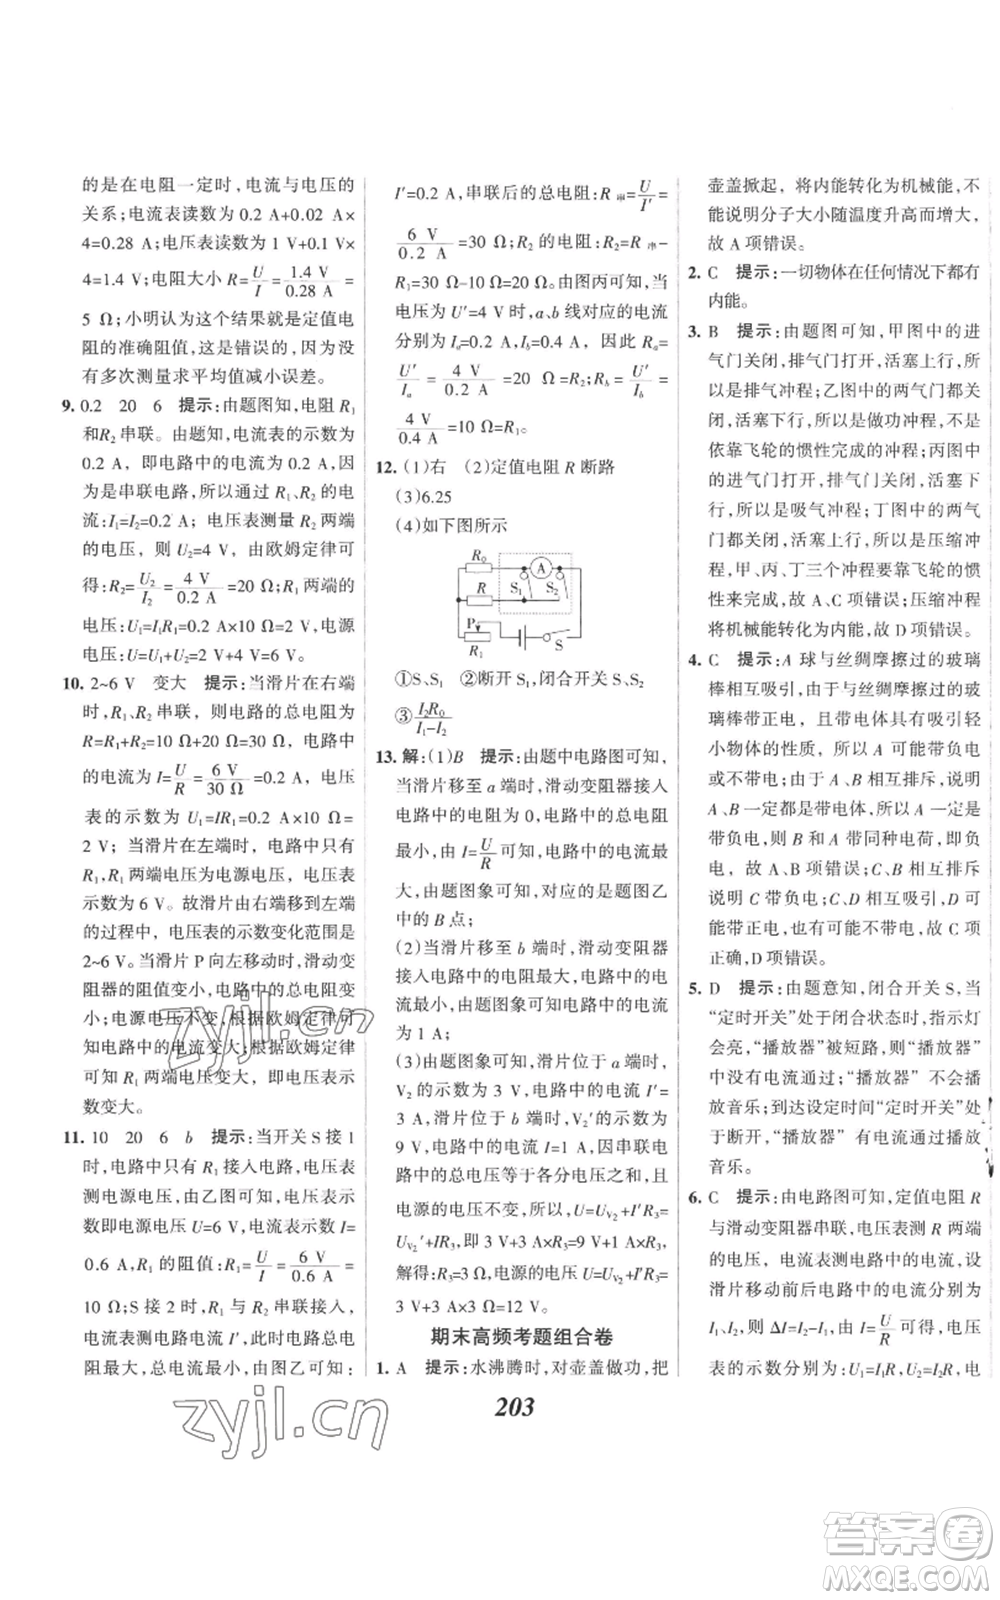 的是在电阻一定时,电流与电压的
关系;电流表读数为 0.2 A+0.02 A×
4=0.28 A;电压表读数为 1 V+0.1 V×
4=1.4 V;电阻大小 R=U/I=1.4 V/0.28 A=
5 Ω;小明认为这个结果就是定值电
阻的准确阻值,这是错误的,因为没
有多次测量求平均值减小误差。
9. 0.2 20 6 提示:由题图知,电阻 R₁
和R₂ 串联。由题知,电流表的示数为
0.2 A,即电路中的电流为 0.2 A,因
为是串联电路,所以通过 R₁、R₂ 的电
流:I₁=I₂=0.2 A;电压表测量 R₂ 两端
的电压,则 U₂=4 V,由欧姆定律可
得:R₂=U₂/I₂=4 V/0.2 A=20 Ω;R₁两端的
电压:U₁=I₁R₁=0.2 A×10 Ω=2 V,电源
电压:U=U₁+U₂=2 V+4 V=6 V。
10. 2~6 V 变大 提示:当滑片在右端
时,R₁、R₂ 串联,则电路的总电阻为
R=R₁+R₂=10 Ω+20 Ω=30 Ω,电路中
的电流为 I=U/R=6 V/30 Ω=0.2 A,电压
表的示数为 U₁=IR₁=0.2 A×10 Ω=
2 V;当滑片在左端时,电路中只有
R₁,R₁ 两端电压为电源电压,电压表
示数为 6 V。故滑片由右端移到左端
的过程中,电压表的示数变化范围是
2~6 V。当滑片 P 向左移动时,滑动变
阻器的阻值变小,电路中的总电阻变
小;电源电压不变,根据欧姆定律可
知电路中的电流变大;根据欧姆定律
可知 R₁ 两端电压变大,即电压表示
数变大。
11. 10 20 6 b 提示:当开关 S 接 1
时,电路中只有 R₁ 接入电路,电压表
测电源电压,由乙图可知,电压表示
数即电源电压 U=6 V,电流表示数 I=
0.6 A,R₁ 的阻值:R₁=U/I=6 V/0.6 A=
10 Ω;S 接 2 时,R₁ 与 R₂ 串联接入,
电流表测电路电流 I′,此时电压表示
数即电源电压,由乙图可知,示数:
I′=0.2 A,串联后的总电阻:R串=U/I′=
6 V/0.2 A=30 Ω;R₂ 的电阻:R₂=R串-
R₁=30 Ω-10 Ω=20 Ω。由图丙可知,当
电压为 U′=4 V 时,a、b 线对应的电流
分别为 Iₐ=0.2 A,I_b=0.4 A,因此 Rₐ=
U′/Iₐ=4 V/0.2 A=20 Ω=R₂;R_b=U′/I_b=
4 V/0.4 A=10 Ω=R₁。
12. (1)右 (2)定值电阻 R 断路
(3)6.25
(4)如下图所示
R₀ A
R S₁ S₂
P
R₁ S
①S、S₁ ②断开 S₁,闭合开关 S、S₂
③I₂R₀/(I₁-I₂)
13. 解:(1)B 提示:由题中电路图可知,
当滑片移至 a 端时,滑动变阻器接入
电路中的电阻为 0,电路中的总电阻
最小,由 I=U/R 可知,电路中的电流最
大,由题图象可知,对应的是题图乙
中的 B 点;
(2)当滑片移至 b 端时,滑动变阻器
接入电路中的电阻最大,电路中的电流
最小,由题图象可知电路中的电流
为 1 A;
(3)由题图象可知,滑片位于 a 端时,
V₂ 的示数为 3 V,电路中的电流 I′=
3 A,滑片位于 b 端时,V₂′的示数为
9 V,电路中的电流 I=1 A,因串联电
路中的总电压等于各分电压之和,
所以,电源的电压 U=U_V₂+I′R₃=
U_V₂′+IR₃,即 3 V+3 A×R₃=9 V+1 A×R₃,
解得:R₃=3 Ω,电源的电压 U=U_V₂+I′R₃=
3 V+3 A×3 Ω=12 V。
期末高频考题组合卷
1. A 提示:水沸腾时,对壶盖做功,把
壶盖掀起,将内能转化为机械能,不
能说明分子大小随温度升高而增大,
故 A 项错误。
2. C 提示:一切物体在任何情况下都有
内能。
3. B 提示:由题图可知,甲图中的进
气门关闭,排气门打开,活塞上行,所
以是排气冲程;乙图中的两气门都关
闭,活塞下行,所以是做功冲程,不是
依靠飞轮的惯性完成的;丙图中
的进气门打开,排气门关闭,活塞下
行,所以是吸气冲程;丁图中的两气
门都关闭,活塞上行,所以是压缩冲
程,甲、丙、丁三个冲程要靠飞轮的惯
性来完成,故 A、C 项错误;压缩冲程
将机械能转化为内能,故 D 项错误。
4. C 提示:A 球与丝绸摩擦过的玻璃
棒相互吸引,而与丝绸摩擦过的玻
璃棒带正电,又因带电体具有吸引轻
小物体的性质,所以 A 可能带负电
或不带电;由于 A、B 相互排斥,说明
A、B 一定都是带电体,所以 A 一定是
带负电,B 和 A 带同种电荷,即负
电,故 A、B 项错误;C、A 相互排斥
说明 C 带负电;C、D 相互吸引,D 可
能带正电,也可能不带电,故 C 项
正确,D 项错误。
5. D 提示:由题意知,闭合开关 S,当
“定时开关”处于闭合状态时,指示灯
会亮,“播放器”被短路,则“播放器”中
没有电流通过;此时“播放器”不会播
放音乐;到达设定时间“定时开关”处
于断开,“播放器”有电流通过播放
音乐。
6. C 提示:由电路图可知,定值电阻 R
与滑动变阻器串联,电压表测 R 两端
的电压,电流表测电路中的电流,设
滑片移动前后电路中的电流分别为
I₁、I₂,则 ΔI=I₁-I₂,由 I=U/R 可得,电压
表的示数分别为:U₁=I₁R,U₂=I₂R,电
203
zyjl.cn
zyjl.cn
答案卷
MXQE.COM